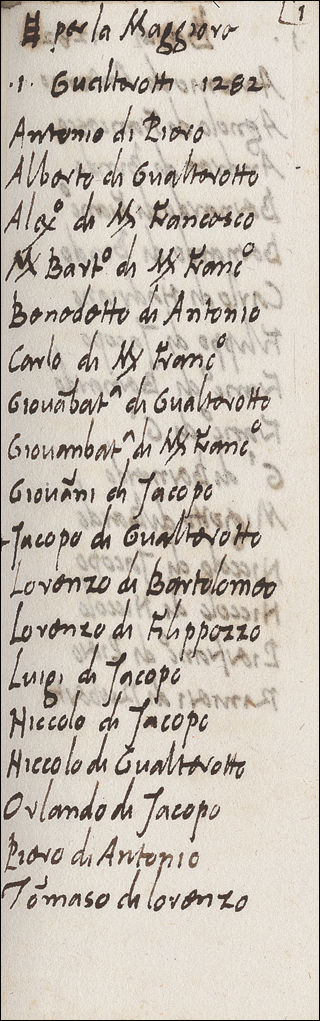 1
per la Maggiore
.1. Gualterotti 1282
Antonio di Piero
Alberto di Gualterotto
Alexº di Mʳ Francesco
Mʳ Bartº di Mʳ Francº
Benedetto di Antonio
Carlo di Mʳ Francº
Giovābatᵃ di Gualterotto
Giovambatᵃ di Mʳ Francº
Giovāni di Jacopo
Jacopo di Gualterotto
Lorenzo di Bartolomeo
Lorenzo di Filippozzo
Luigi di Jacopo
Niccolo di Jacopo
Niccolo di Gualterotto
Orlando di Jacopo
Piero di Antonio
Tōmaso di lorenzo